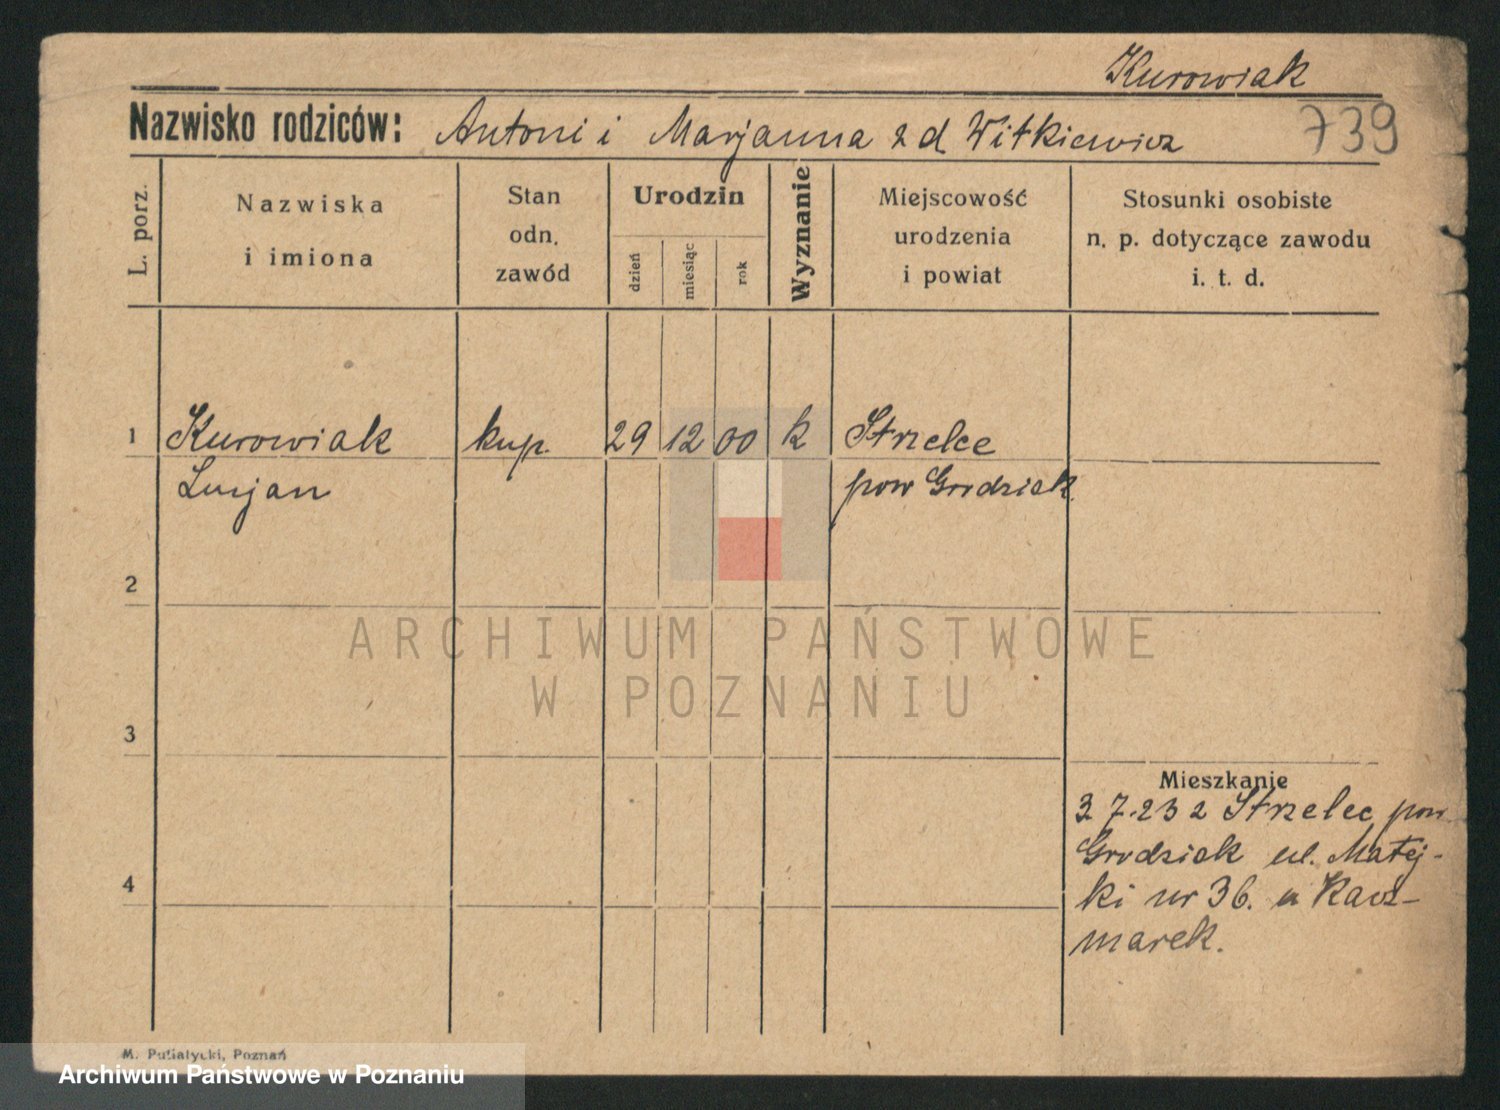 Kurowiak
Nazwisko rodziców: Antoni i Marjanna z d Witkiewicz 739
L. porz.
Nazwiska
i imiona
Stan
odn.
zawód
Urodzin
dzień
miesiąc
rok
Wyznanie
Miejscowość
urodzenia
i powiat
Stosunki osobiste
n. p. dotyczące zawodu
i. t. d.
1 Kurowiak kup. 29 12 00 k Strzelce
Lucjan pow Grodziek
2
ARCHIWUM PAŃSTWOWE
W POZNANIU
3
Mieszkanie
3 7.23 z Strzelec pow
Grodziek ul. Matej-
4
ki nr 36. u Kacz-
marek.
M. Putiatycki, Poznań
Archiwum Państwowe w Poznaniu